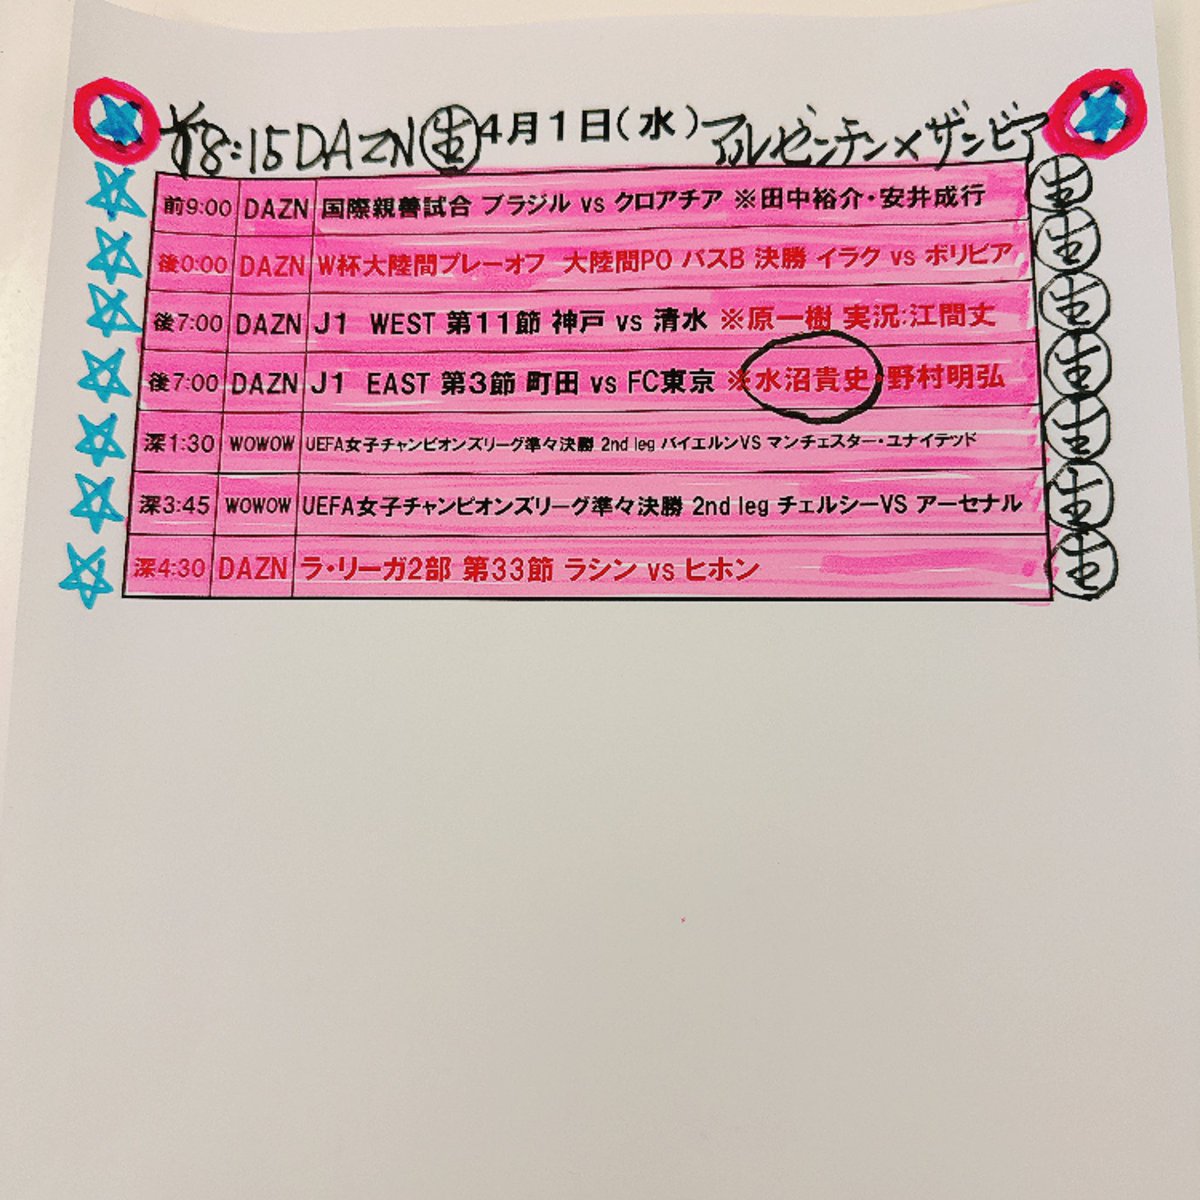 前8:15DAZN㊗生 4月1日(水) アルゼンチン×ザンビア
前9:00 DAZN 国際親善試合 ブラジル vs クロアチア ※田中裕介・安井成行 生
後0:00 DAZN W杯大陸間プレーオフ 大陸間PO パスB 決勝 イラク vs ボリビア 生
後7:00 DAZN J1 WEST 第11節 神戸 vs 清水 ※原一樹 実況:江間丈 生
後7:00 DAZN J1 EAST 第3節 町田 vs FC東京 ※水沼貴史・野村明弘 生
深1:30 WOWOW UEFA女子チャンピオンズリーグ準々決勝 2nd leg バイエルンVS マンチェスター・ユナイテッド 生
深3:45 WOWOW UEFA女子チャンピオンズリーグ準々決勝 2nd leg チェルシーVS アーセナル 生
深4:30 DAZN ラ・リーガ2部 第33節 ラシン vs ヒホン 生